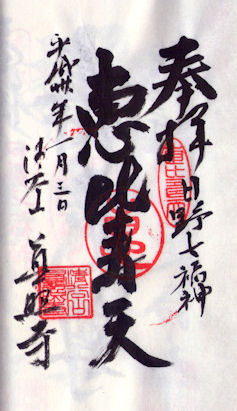 奉拝
日野七福神
恵比寿天
平成廿年一月三日
清谷山
真照寺